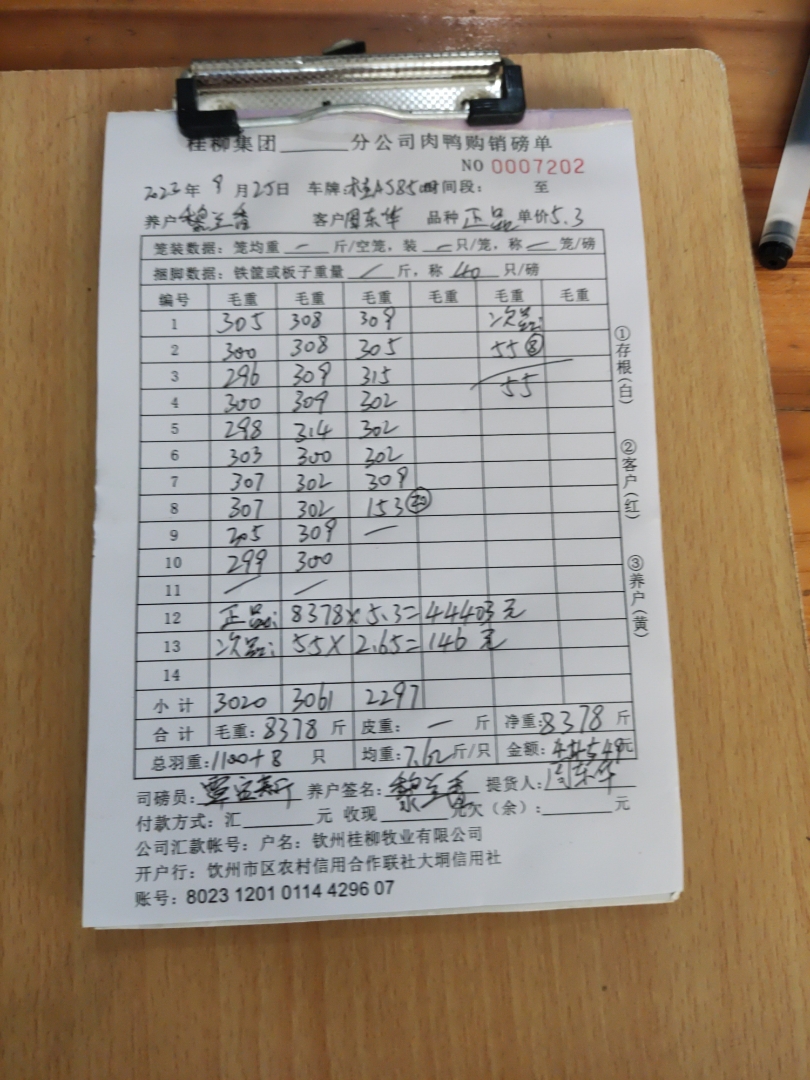 桂柳集团______分公司肉鸭购销磅单
NO 0007202
年 9 月 25 日 车牌: 时间段: 至
养户 黎兰香 客户 周东华 品种 正品 单价 5.3
笼装数据：笼均重 一 斤/空笼，装 一 只/笼，称 一 笼/磅
捆脚数据：铁筐或板子重量 / 斤，称 40 只/磅
编号 毛重 毛重 毛重 毛重 毛重 毛重
1 305 308 309 次品:
2 300 308 305 55⑧
3 296 309 315 55
4 300 309 302
5 298 314 302
6 303 300 302
7 307 302 309
8 307 302 153⑳
9 305 309 —
10 299 300
11 / /
12 正品: 8378×5.3=44403元
13 次品: 55×2.65=146元
14
小计 3020 3061 2297
合计 毛重: 8378 斤 皮重: 一 斤 净重: 8378 斤
总羽重: 1100+8 只 均重: 7.62 斤/只 金额: 44549元
司磅员: 养户签名: 黎兰香 提货人: 周东华
付款方式：汇______元 收现______元欠（余）:______元
公司汇款帐号：户名：钦州桂柳牧业有限公司
开户行：钦州市区农村信用合作联社大垌信用社
账号：8023 1201 0114 4296 07
①存根(白)
②客户(红)
③养户(黄)